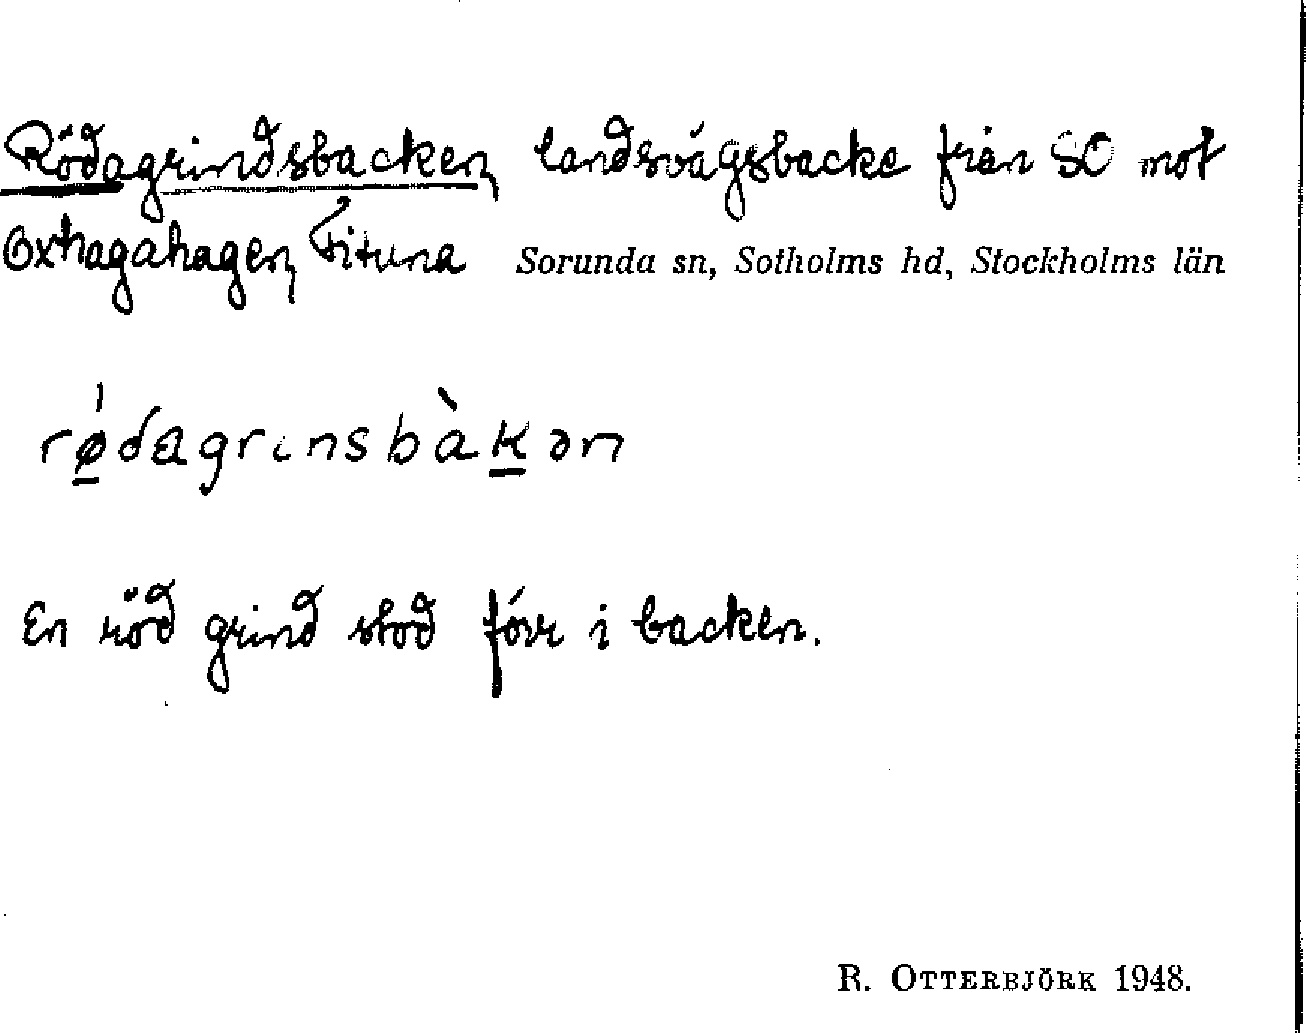 Rödagrindsbacken, landsvägsbacke från SO mot
Oxhagahagen, Fituna Sorunda sn, Sotholms hd, Stockholms län
rǿdagrinsbàkən
En röd grind stod förr i backen.
R. OTTERBJÖRK 1948.